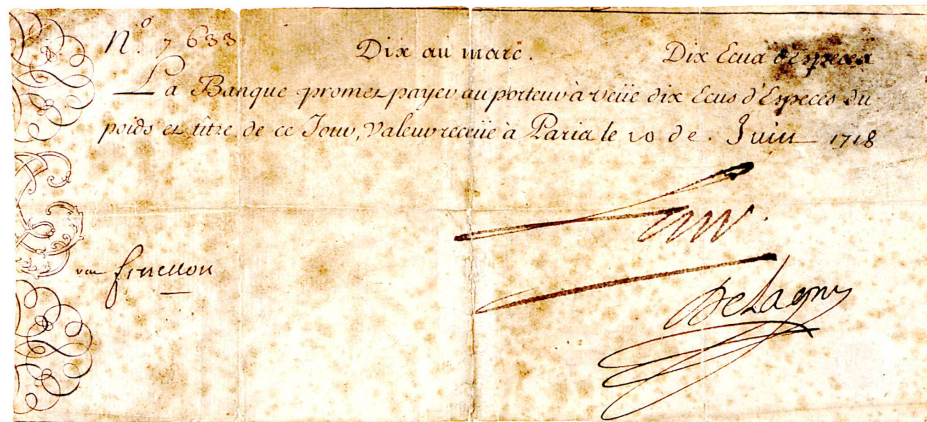 N.º 7633 Dix au marc. Dix Ecus d'Especes
La Banque promet payer au porteur à veüe dix Ecus d'Especes du
poids et titre de ce Jour, Valeur receüe à Paris le 10 de. Juin 1718
veu fenellon
Law.
DeLagny